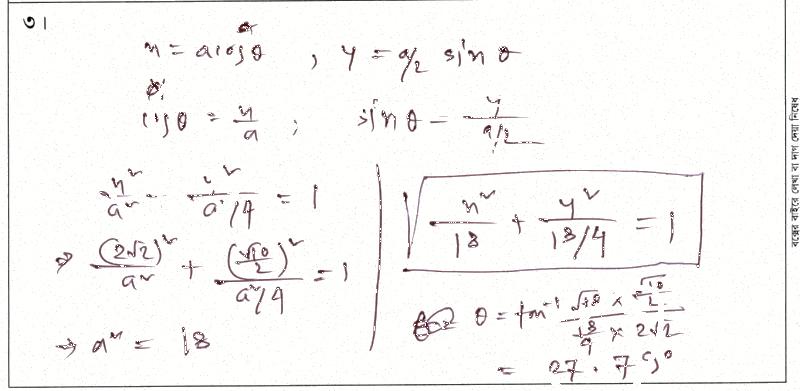 ৩।
x = a cosθ , y = a/2 sinθ
cosθ = x/a ; sinθ = y/(a/2)
x²/a² + y²/(a²/4) = 1
⇒ (2√2)²/a² + (√10/2)²/(a²/4) = 1
⇒ a² = 18
x²/18 + y²/(18/4) = 1
θ = tan⁻¹
বক্সের বাইরে লেখা বা দাগ দেয়া নিষেধ